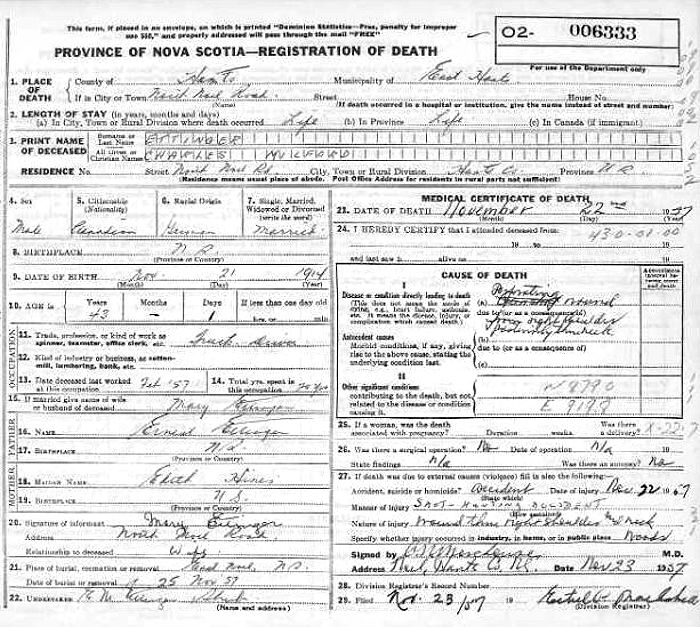 This form, if placed in an envelope, on which is printed "Dominion Statistics—Free, penalty for improper
use $50," and properly addressed will pass through the mail "FREE"
02- 006333
PROVINCE OF NOVA SCOTIA—REGISTRATION OF DEATH
For use of the Department only
1. PLACE OF DEATH County of Hants Municipality of East Hants
If in City or Town North Noel Road Street House No.
(Name) (If death occurred in a hospital or institution, give the name instead of street and number)
2. LENGTH OF STAY (in years, months and days)
(a) In City, Town or Rural Division where death occurred Life (b) In Province Life (c) In Canada (if immigrant)
3. PRINT NAME OF DECEASED Surname or Last Name ETTINGER
All Given or Christian Names CHARLES WILFRED
RESIDENCE No. Street North Noel Rd City, Town or Rural Division Hants Co. Province N S
(Residence means usual place of abode. Post Office Address for residents in rural parts not sufficient)
4. Sex Male
5. Citizenship (Nationality) Canadian
6. Racial Origin German
7. Single, Married, Widowed or Divorced (write the word) Married
8. BIRTHPLACE N S
(Province or Country)
9. DATE OF BIRTH Nov 21 1914
(Month) (Day) (Year)
10. AGE is Years 43 Months - Days 1 If less than one day
hrs. or min.
OCCUPATION
11. Trade, profession, or kind of work as spinner, teamster, office clerk, etc. Truck Driver
12. Kind of industry or business, as cotton-mill, lumbering, bank, etc.
13. Date deceased last worked at this occupation Feb '57
14. Total yrs. spent in this occupation
15. If married give name of wife or husband of deceased Mary Ettinger
FATHER
16. NAME Ernest Ettinger
17. BIRTHPLACE N.S.
(Province or Country)
MOTHER
18. MAIDEN NAME Edith Hines
19. BIRTHPLACE N S.
(Province or Country)
20. Signature of informant Mary Ettinger
Address North Noel Road
Relationship to deceased Wife
21. Place of burial, cremation or removal Noel, N.S.
Date of burial or removal 25 Nov 57
22. UNDERTAKER Ettinger
(Name and address)
MEDICAL CERTIFICATE OF DEATH
23. DATE OF DEATH November 22nd 1957
(Month) (Day)
24. I HEREBY CERTIFY that I attended deceased from:
430-01-00
19 to 19
and last saw h alive on 19
CAUSE OF DEATH
Approximate interval between onset and death
I
Disease or condition directly leading to death
(This does not mean the mode of dying, e.g., heart failure, asthenia, etc. It means the disease, injury, or complication which caused death.)
(a) wound
due to (or as a consequence of)
right shoulder
Antecedent causes
Morbid conditions, if any, giving rise to the above cause, stating the underlying condition last.
(b)
due to (or as a consequence of)
(c)
II
Other significant conditions
contributing to the death, but not related to the disease or condition causing it.
N 8790
E 9198
25. If a woman, was the death associated with pregnancy? Duration weeks Was there a delivery?
X-22-7
26. Was there a surgical operation? No Date of operation n/a
State findings n/a Was there an autopsy? No
27. If death was due to external causes (violence) fill in also the following:
Accident, suicide or homicide? Accident Date of injury Nov. 22 1957
(State which)
Manner of injury SHOT - HUNTING ACCIDENT
(How sustained)
Nature of injury wound thru right shoulder and neck
Specify whether injury occurred in industry, in home, or in public place Woods
Signed by M.D.
Address Noel, Hants Co. N.S. Date Nov 23 1957
28. Division Registrar's Record Number
29. Filed Nov. 23/57 19
(Division Registrar)